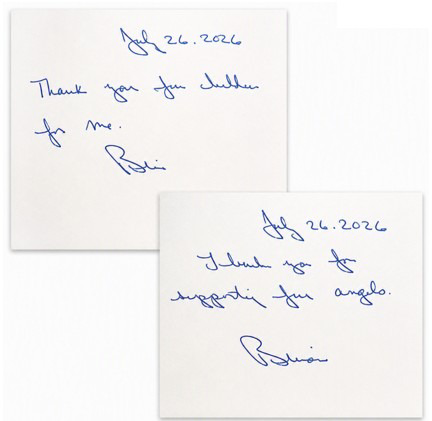 July 26.2026
Thank you for children
for me.
July 26.2026
Thank you for
supporting fur angels.